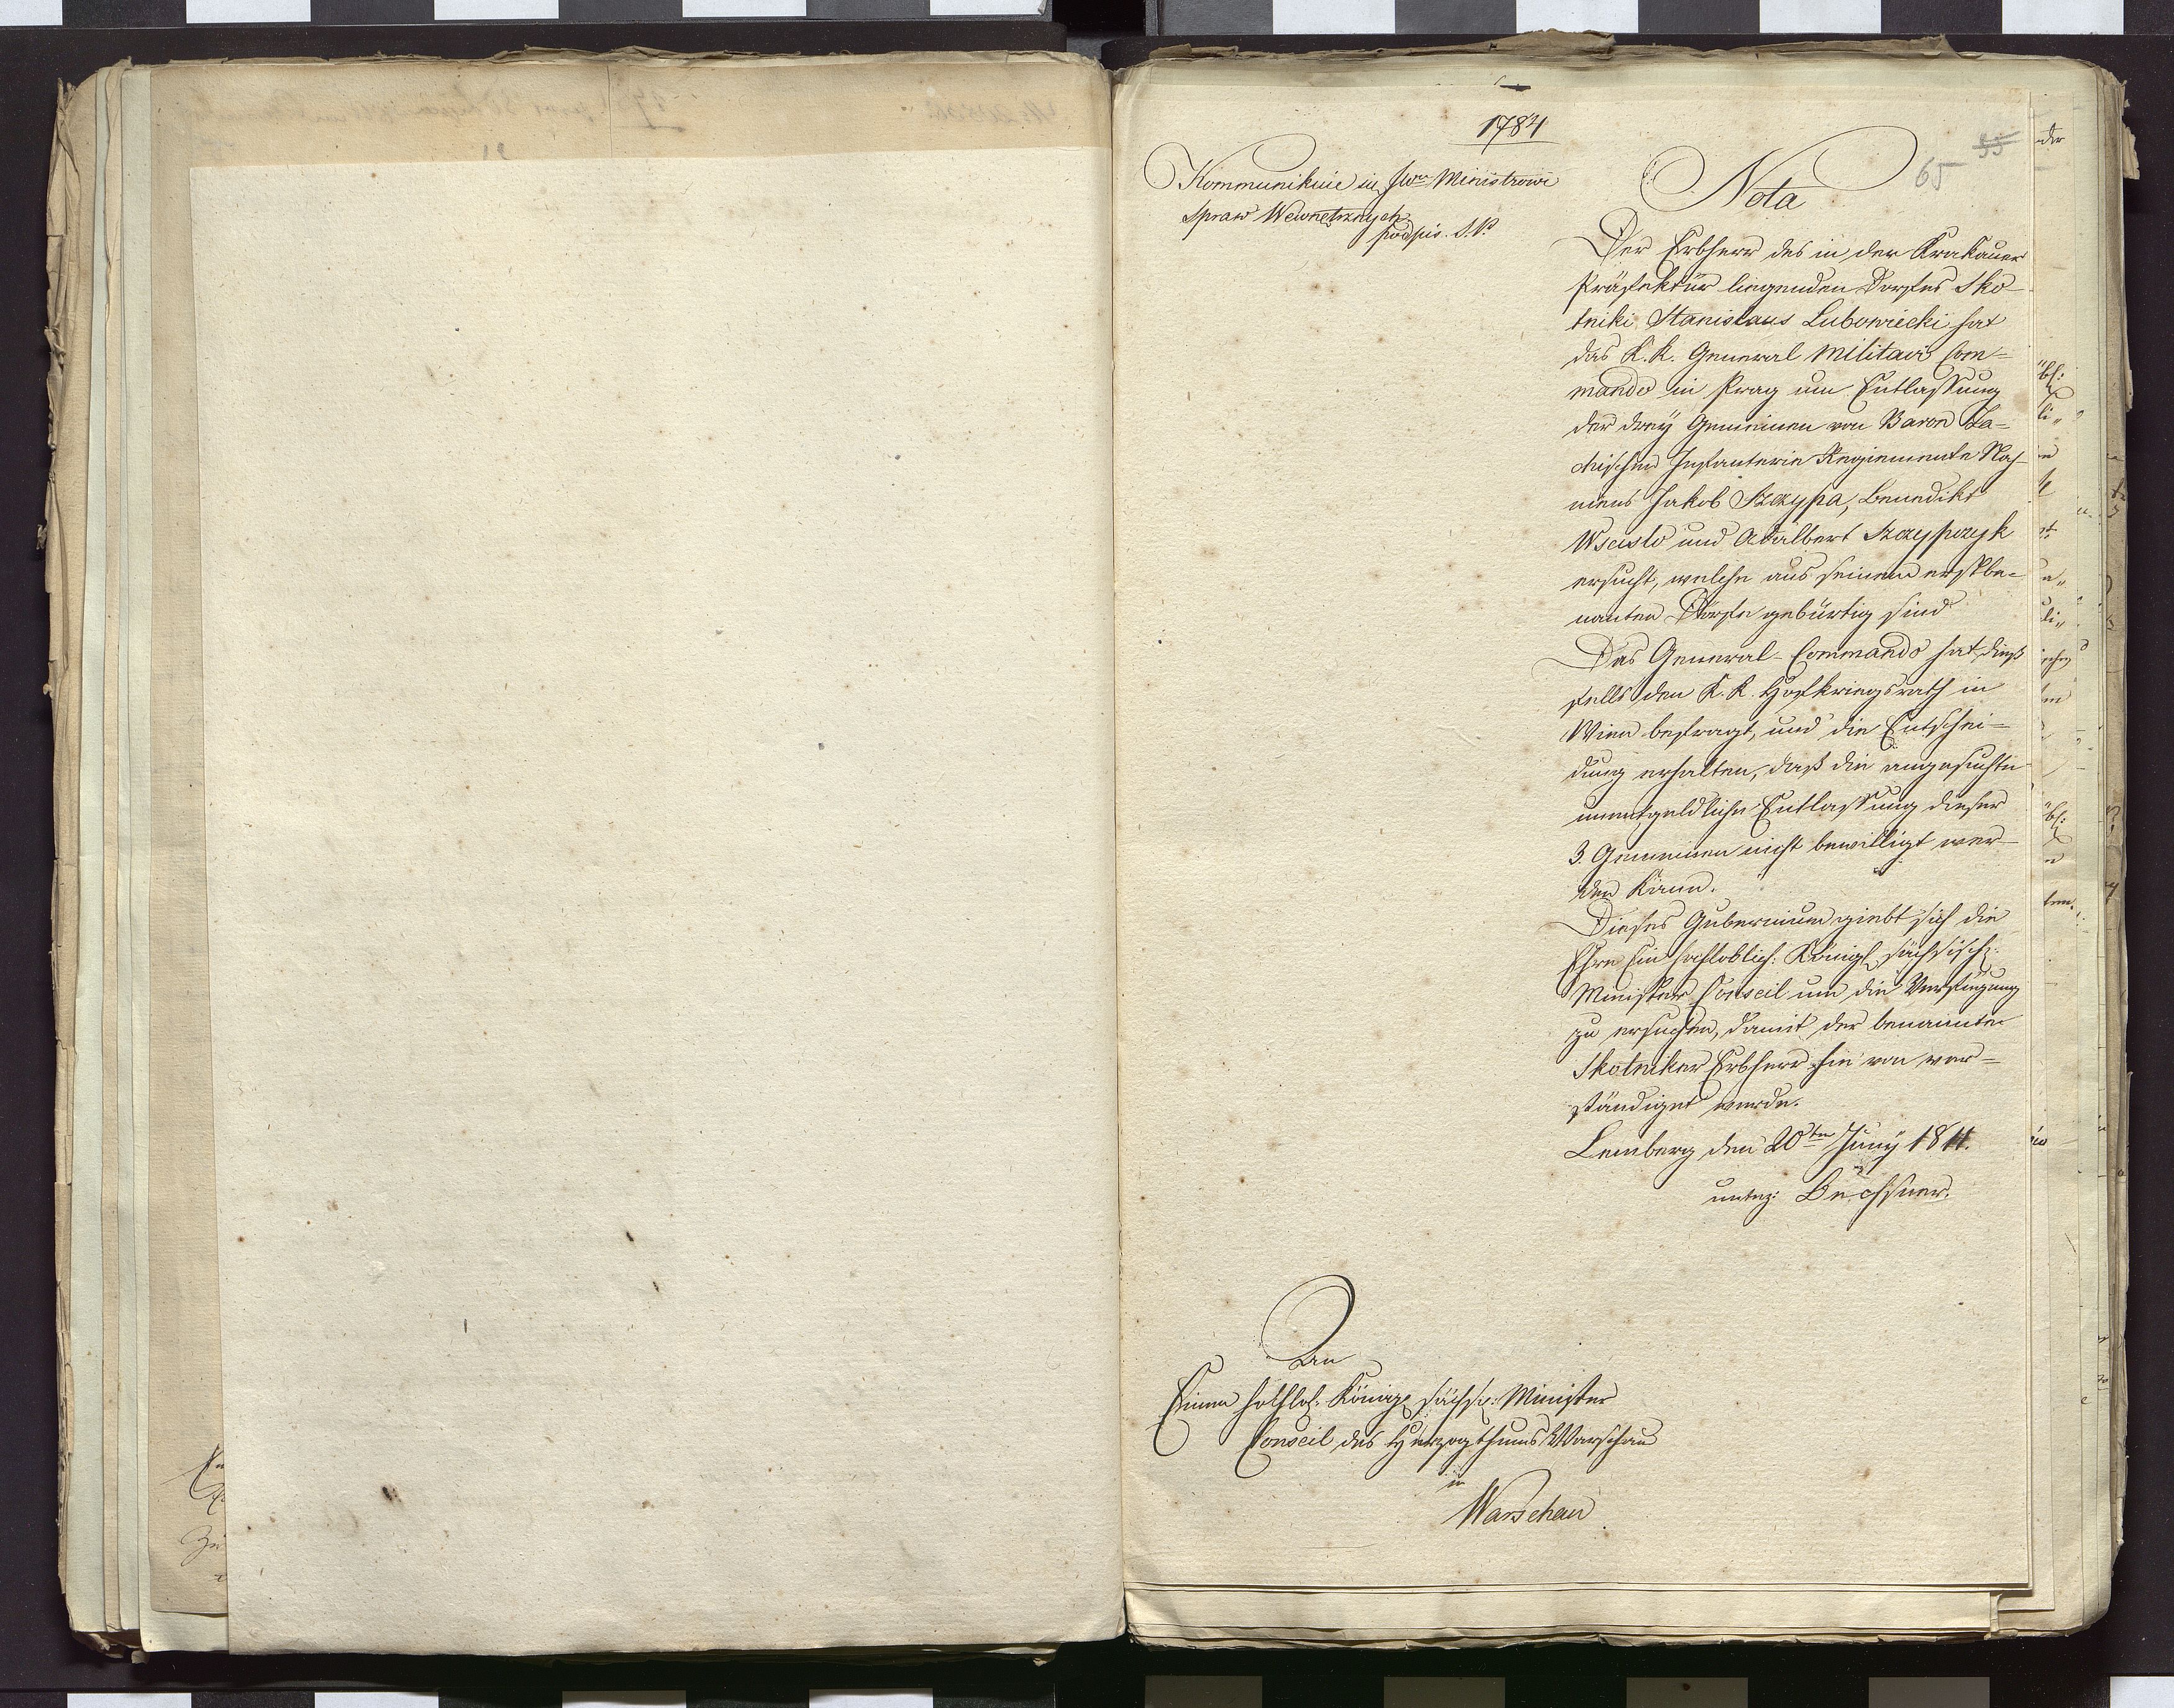 1784
Kommunikuie się Jwu Ministrowi
Spraw Wewnętrznych
podpis. S. P.
65 55
Nota
Der Erbherr des in der Krakauer
Präfektur liegenden Dorfes Sko-
tniki Stanislaus Lubowiecki hat
das K. K. General Militair Com=
mando in Prag um Entlassung
der drey Gemeinen von Baron
Infanterie Regimente Na-
mens Jakob Szczypa, Benedikt
Wscisło und Adalbert Szczypczyk
ersucht, welche aus seinem erstbe=
nanten Dorfe gebürtig sind
Das General-Commando hat dieß
falls den K. K. Hofkriegsrath in
Wien befragt, und die Entschei=
dung erhalten, daß die angesuchte
unentgeldliche Entlassung dieser
3. Gemeinen nicht bewilligt wer-
den kann.
Dieses Gubernium giebt sich die
Ehre Ein hochlöblich: Königl sächsisch:
Minister Conseil um die Verfügung
zu ersuchen, damit der benannte
Skotniker Erbherr hie von ver=
ständiget werde.
Lemberg den 20ten Juny 1811.
unterz: Oechsner.
An
Einen hochlol: Königl sächs: Minister
Conseil des Herzogthums Warschau
in
Warschau